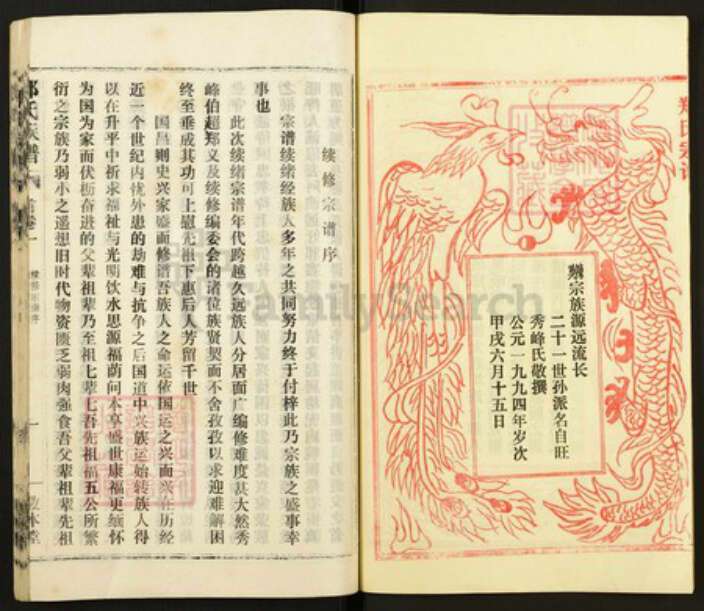 郑氏宗谱
琳宗族源远流长
二十一世孙派名自旺
秀峰氏敬撰
公元一九九四年岁次
甲戌六月十五日
续修宗谱序
宗谱续绪经族人多年之共同努力终于付梓此乃宗族之盛事幸
事也
此次续绪宗谱年代跨越久远族人分居面广编修难度甚大然秀
峰伯超郑义及续修编委会的诸位族贤契而不舍孜孜以求迎难解困
终至垂成其功可上慰先祖下惠后人芳留千世
国昌则史兴家盛而修谱吾族人之命运依国运之兴而兴在历经
近一个世纪内忧外患的劫难与抗争之后国道中兴族运始转族人得
以在升平中祈求福祉与光明饮水思源福荫问本享盛世康福更缅怀
为国为家而伏枥奋进的父辈祖辈乃至祖七辈七吾先祖福五公所繁
衍之宗族乃弱小之遥想旧时代物资匮乏弱肉强食吾父辈祖辈先祖
氏族谱
首卷一
续修宗谱序
一
FamilySearch